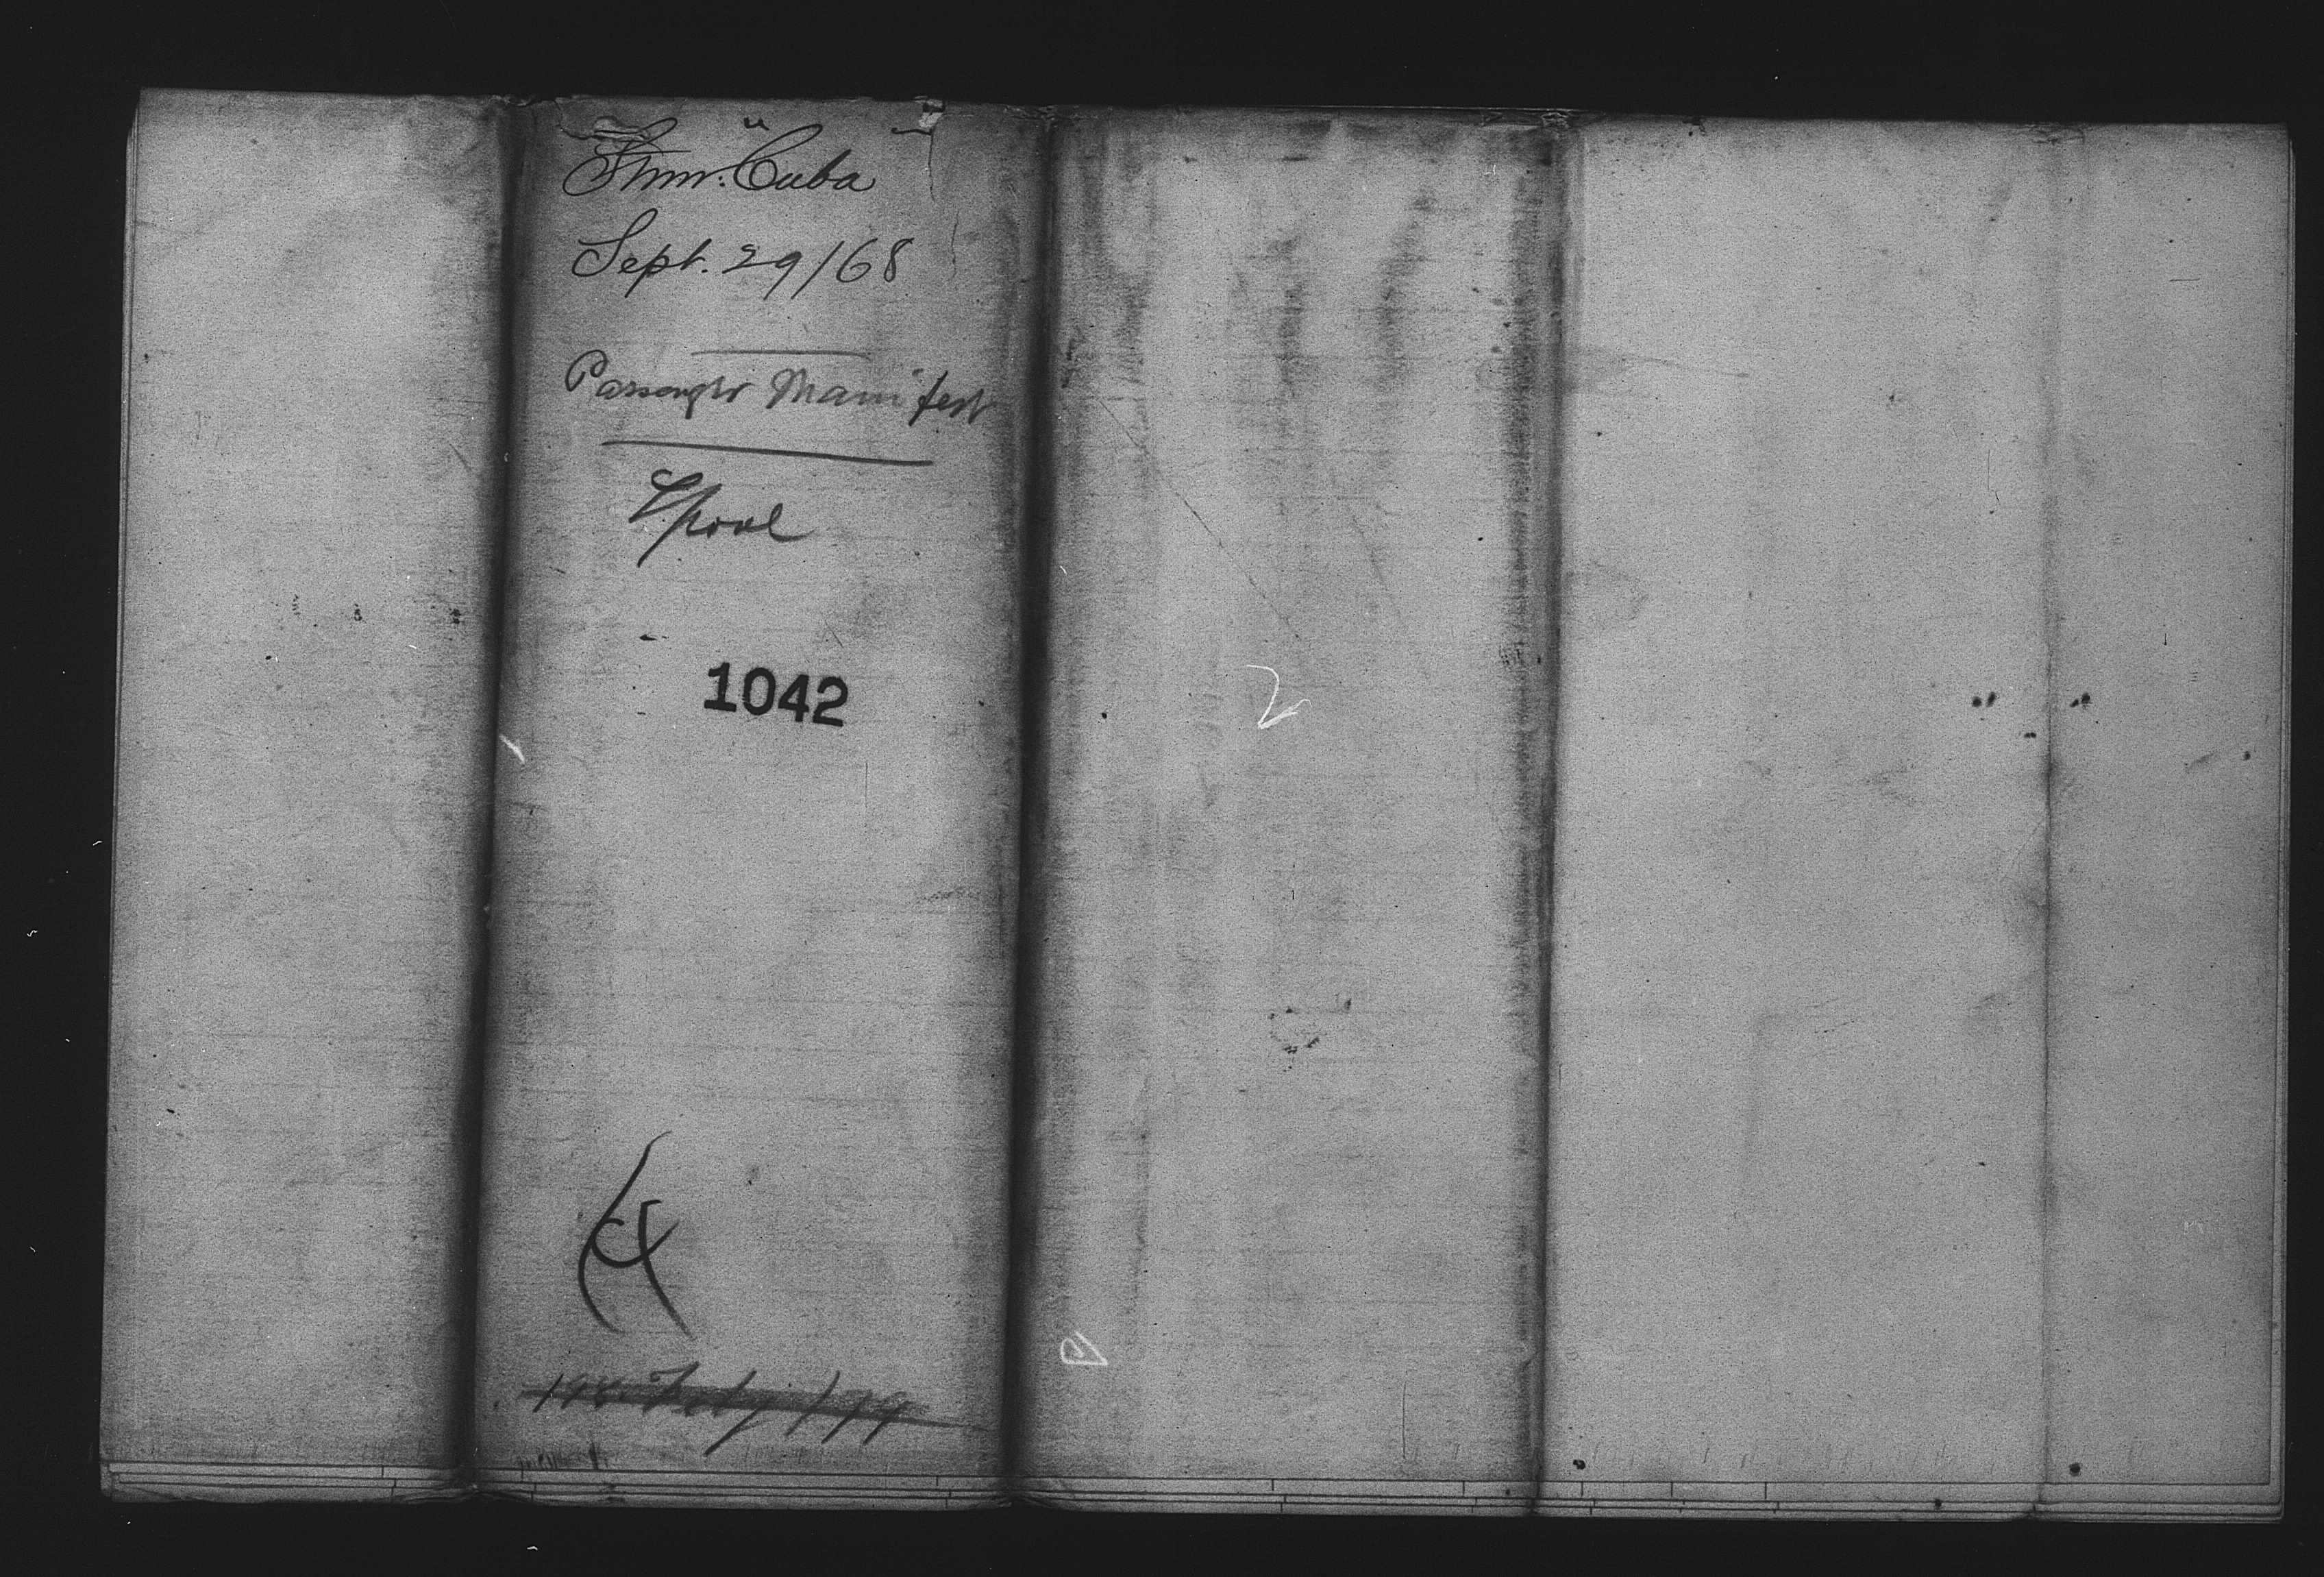 Stmr. "Cuba"
Sept. 29/68
Passenger Manifest
L'pool
1042